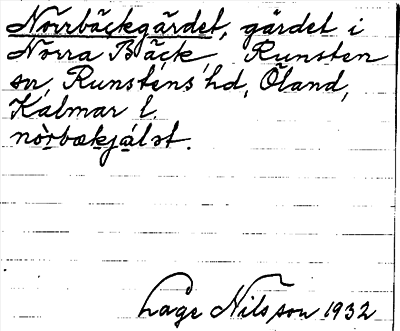 Norrbäckgärdet, gärdet i
Norra Bäck, Runsten
sn, Runstens hd, Öland,
Kalmar l.
nòrbækjálət.
Lage Nilsson 1932